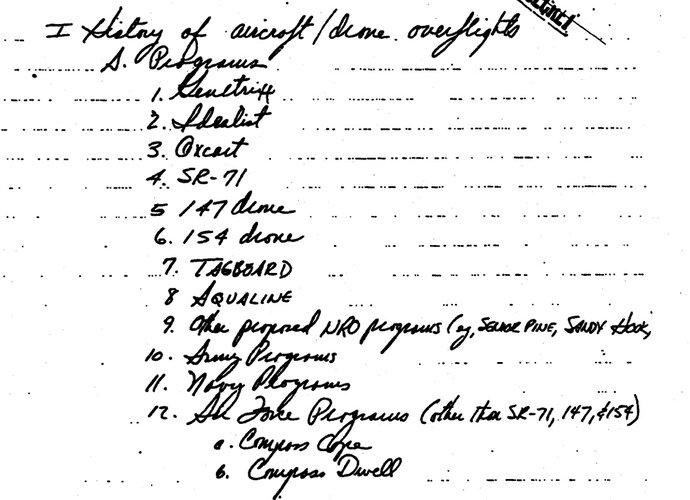 I History of aircraft/drone overflights
A. Programs
1. Genetrix
2. Idealist
3. Oxcart
4. SR-71
5 147 drone
6. 154 drone
7. TAGBOARD
8 AQUALINE
9. Other proposed NRO programs (eg, SENIOR PINE, SANDY HOOK,
10. Army Programs
11. Navy Programs
12. Air Force Programs (other than SR-71, 147, &154)
a. Compass Cope
b. Compass Dwell